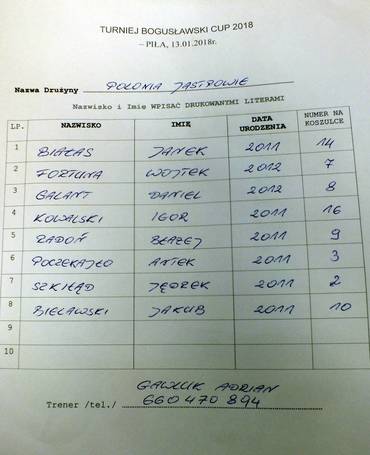 TURNIEJ BOGUSŁAWSKI CUP 2018
– PIŁA, 13.01.2018r.
Nazwa Drużyny POLONIA JASTROWIE
Nazwisko i Imię WPISAĆ DRUKOWANYMI LITERAMI
LP. NAZWISKO IMIĘ DATA URODZENIA NUMER NA KOSZULCE
1 BIAŁAS JANEK 2011 14
2 FORTUNA WOJTEK 2012 7
3 GALANT DANIEL 2012 8
4 KOWALSKI IGOR 2011 16
5 RADOŃ BŁAŻEJ 2011 9
6 POCZEKAJŁO ANTEK 2011 3
7 SZKIŁĄD JĘDREK 2011 2
8 BIELAWSKI JAKUB 2011 10
9
10
GAWLIK ADRIAN
Trener /tel./ 660 470 894